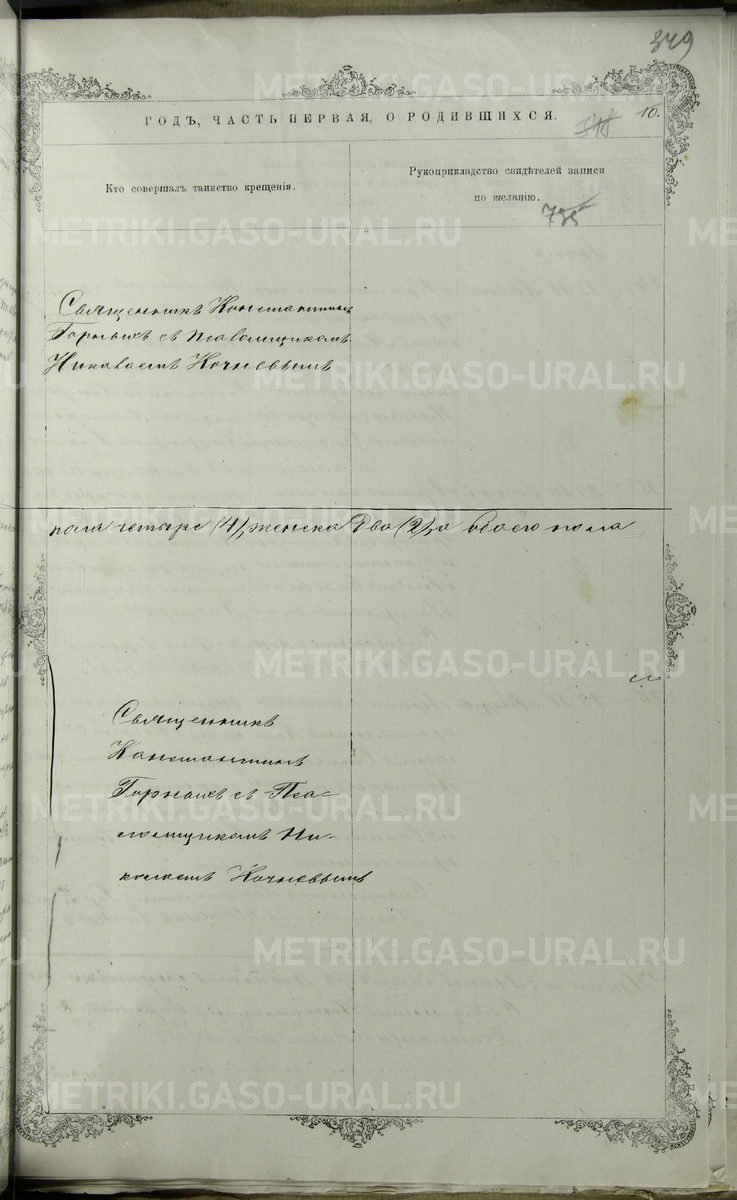 349
ГОДЪ, ЧАСТЬ ПЕРВАЯ, О РОДИВШИХСЯ.
348
10.
Кто совершалъ таинство крещенія.
Рукоприкладство свидѣтелей записи
по желанію.
735
Священникъ Константинъ
Горныхъ съ Псаломщикомъ
Николаемъ Кочневымъ
пола четыре (4), женска два (2), а обоего пола
Священникъ
Константинъ
Горныхъ съ Пса-
ломщикомъ Ни-
колаемъ Кочневымъ
METRIKI.GASO-URAL.RU